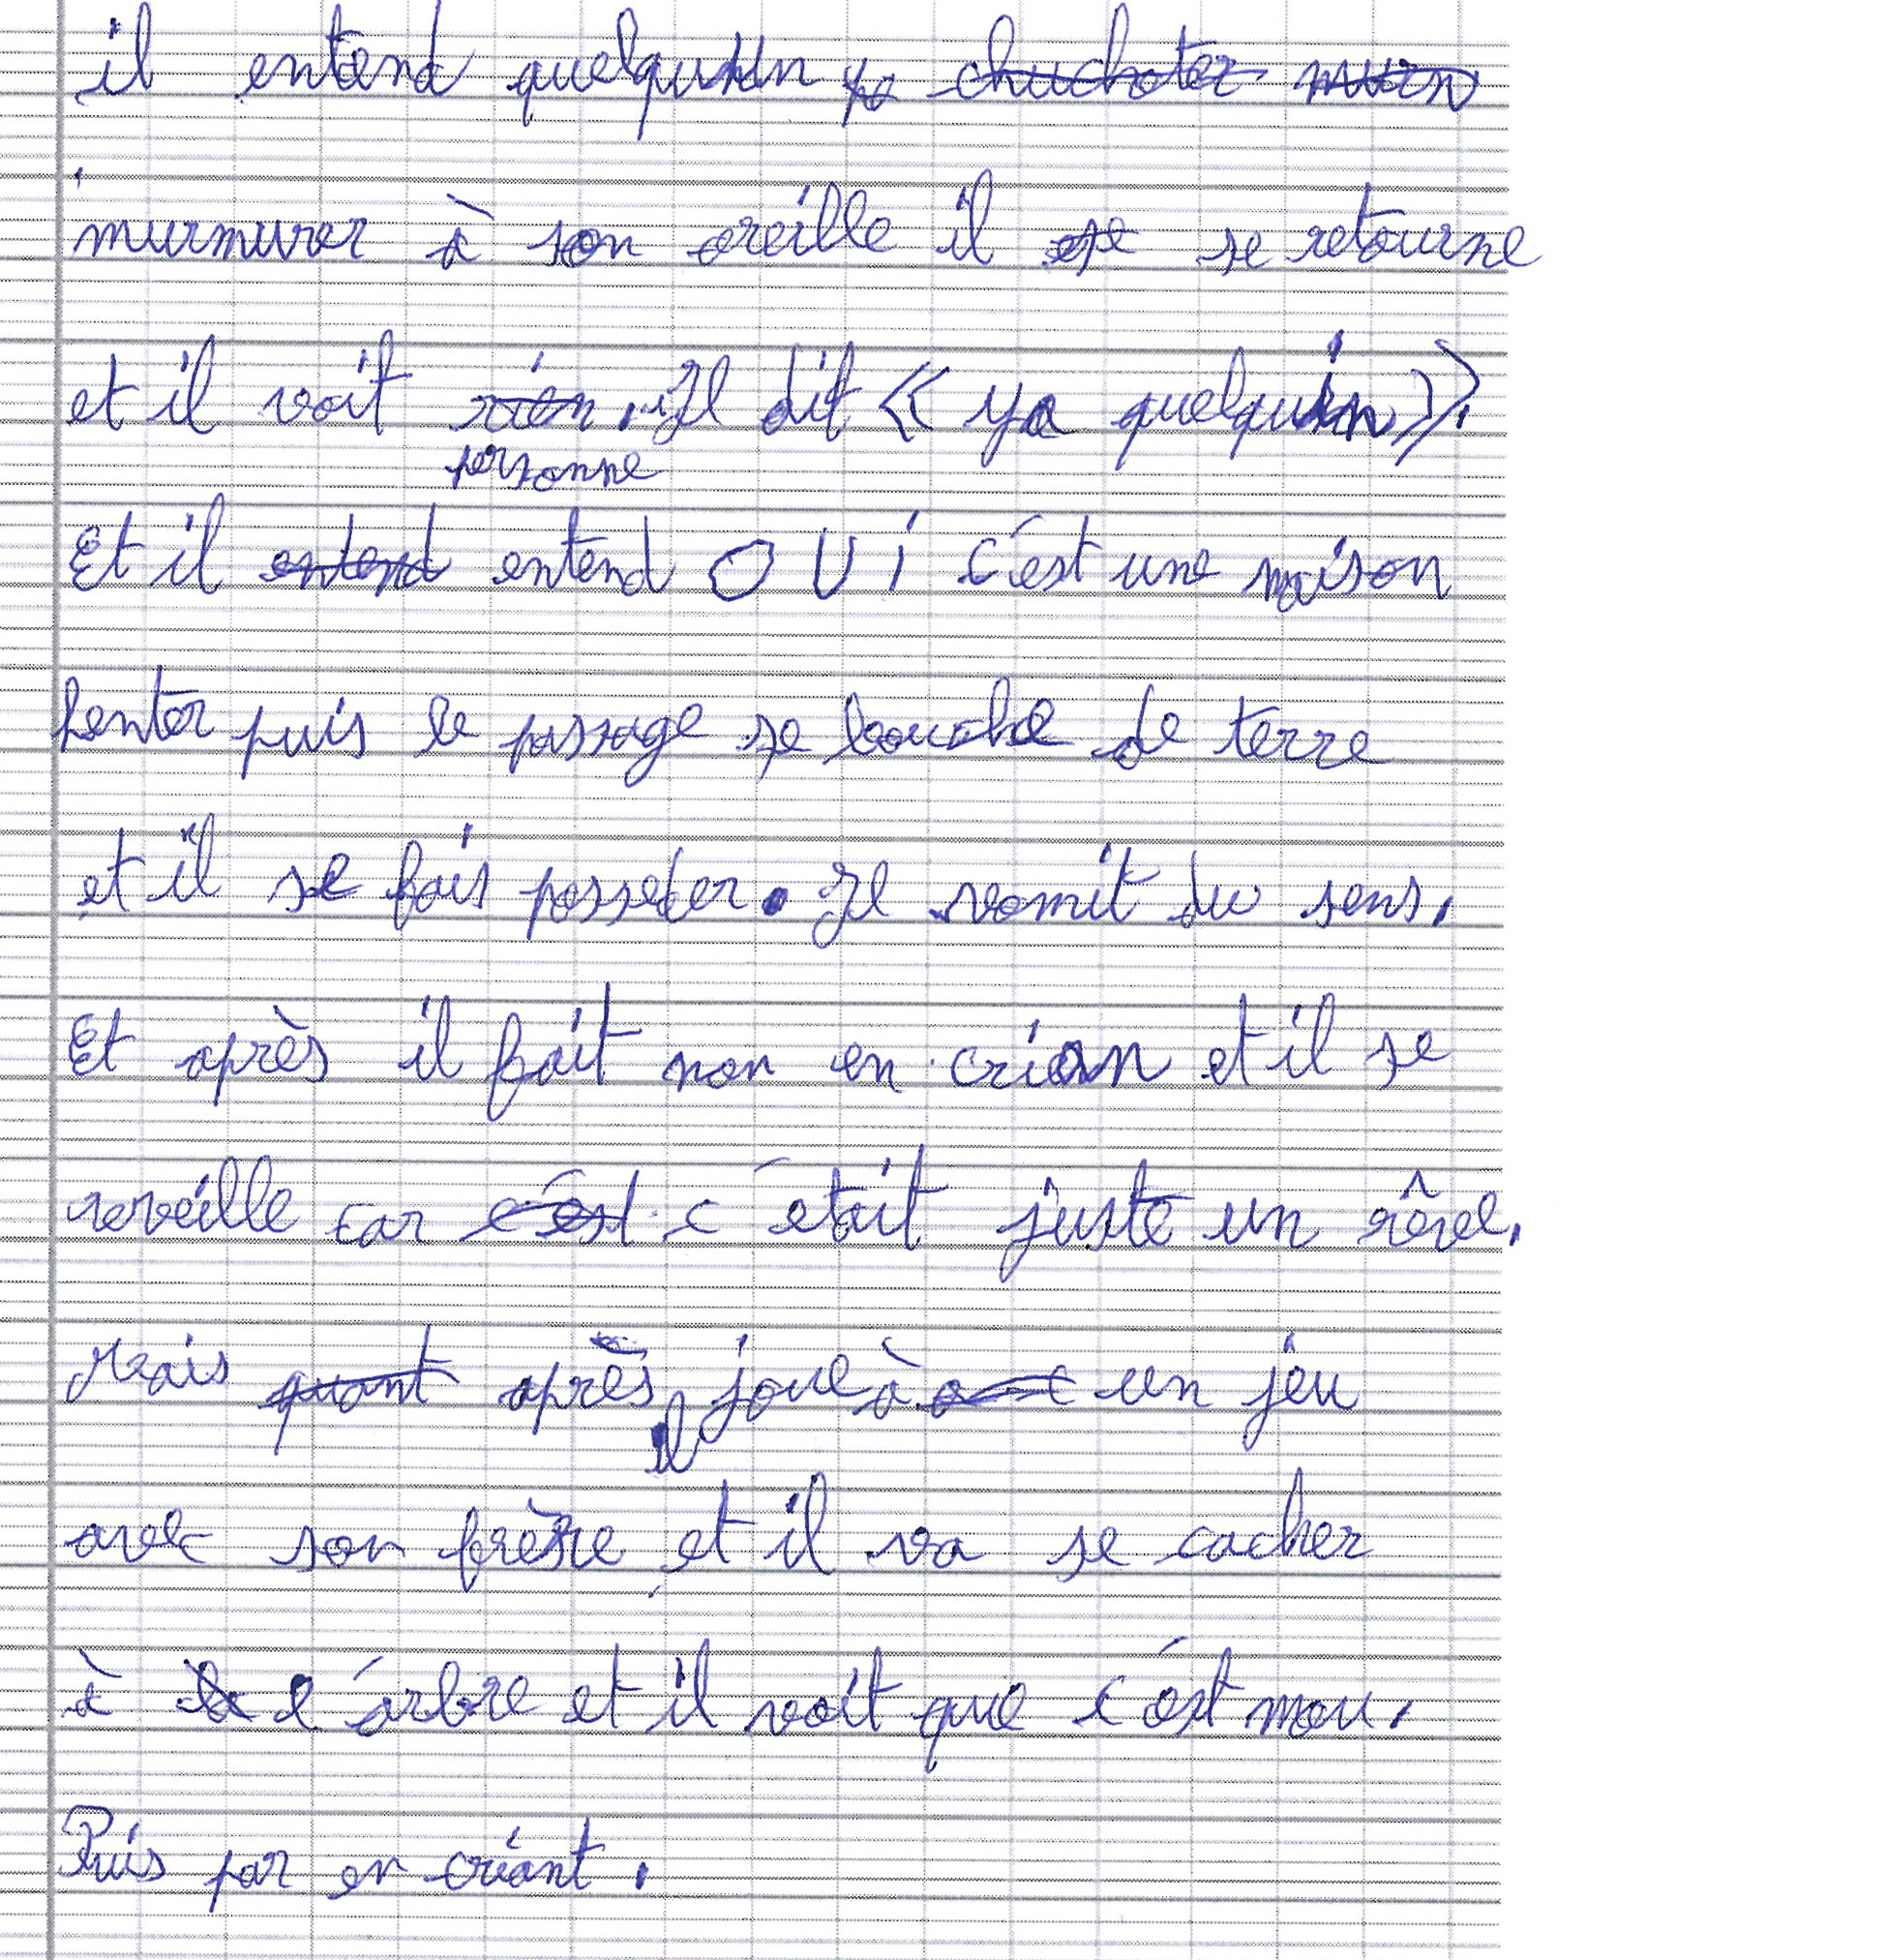 il entend quelqu'un ya chuchoter murm
murmurer à son oreille il est se retourne
et il voit rien. Il dit « ya quelqu'un ».
personne
Et il entend entend OUI c'est une maison
henter puis le passage se bouche de terre
et il se fais posseder. Il vomit du sens.
Et après il fait non en crian et il se
reveille car c'est c'etait juste un rêve.
Mais quant après joue à un jeu
il
avec son frère et il va se cacher
à la l'arbre et il voit que c'est mou.
Puis par en criant.